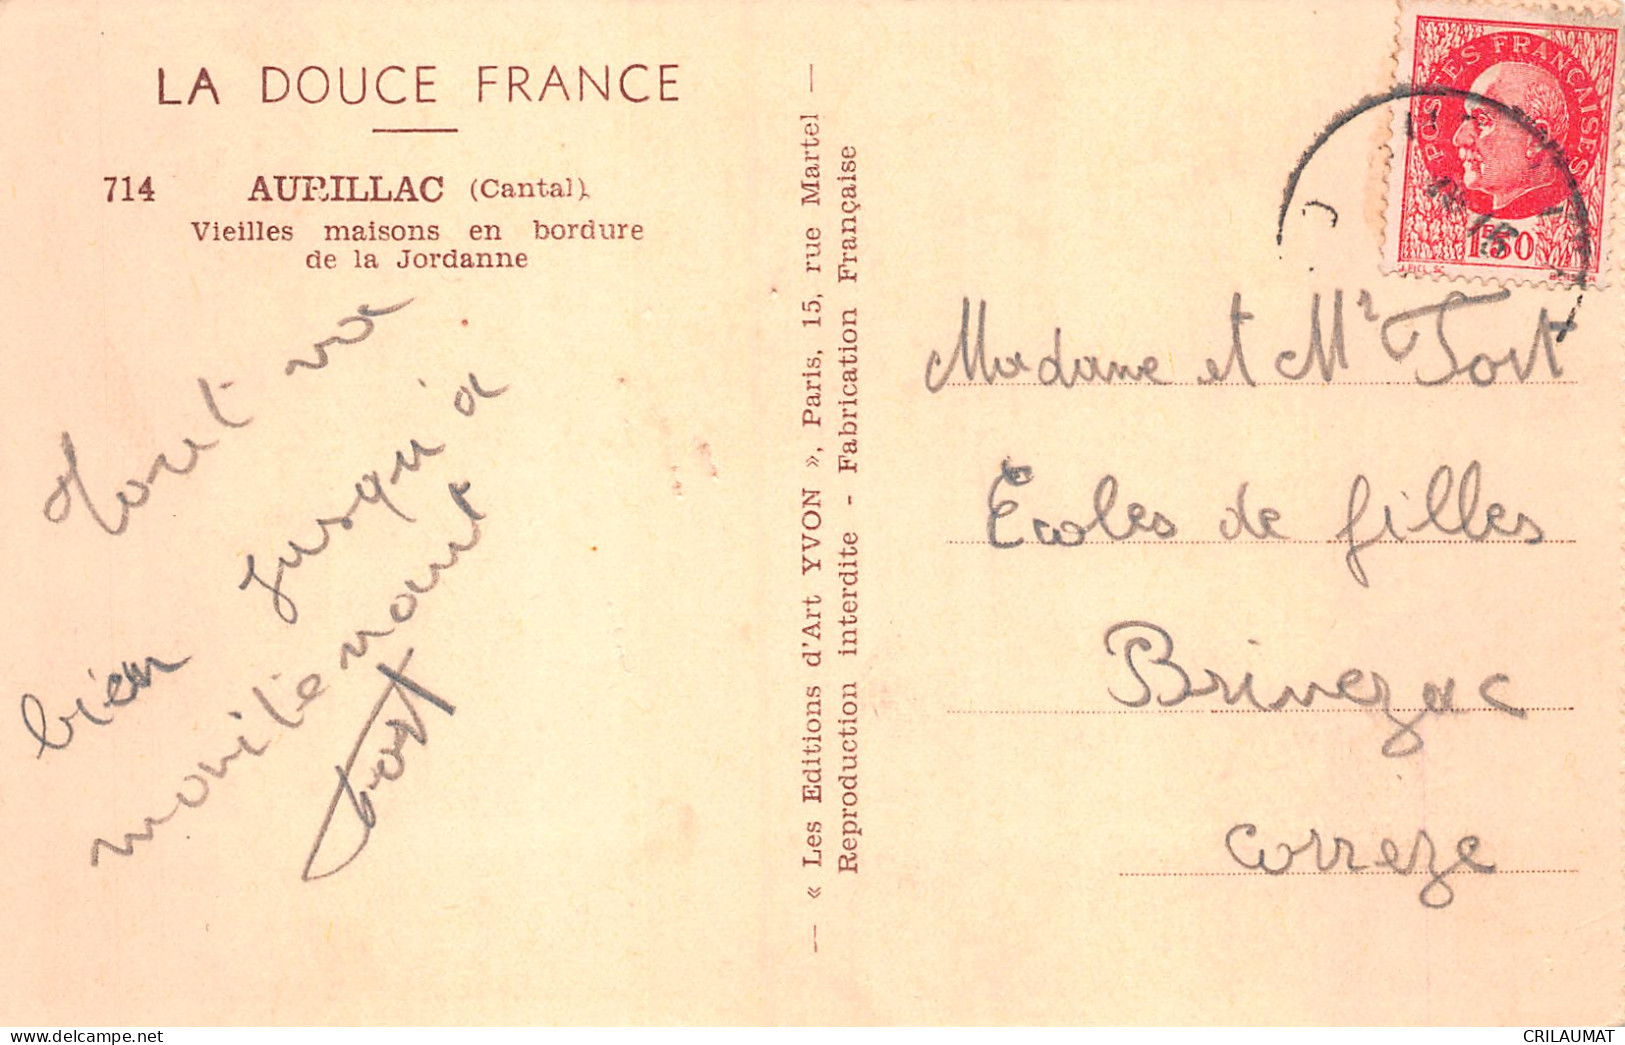 LA DOUCE FRANCE
714 AURILLAC (Cantal)
Vieilles maisons en bordure
de la Jordanne
Tout va
bien jusqu'à
maintenant
Fort
— « Les Editions d'Art YVON », Paris, 15, rue Martel —
Reproduction interdite - Fabrication Française
POSTES FRANÇAISES
1F50
Madame et Mr Fort
Ecoles de filles
Brivezac
Correze
CRILAUMAT